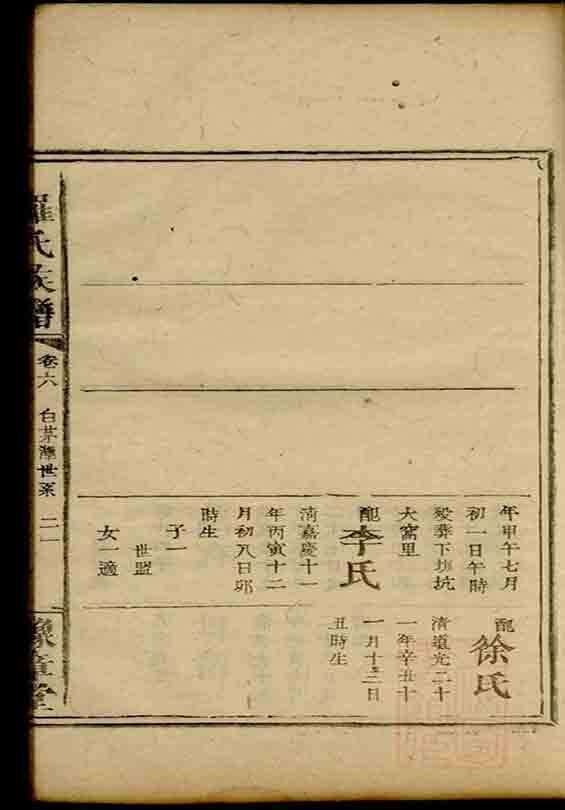 年甲午七月
初一日午時
殁葬下坊坑
大窩里
配李氏
清嘉慶十一
年丙寅十二
月初八日卯
時生
子一
世盟
女一適
配徐氏
清道光二十
一年辛丑十
一月十二日
丑時生
羅氏族譜
卷六
白茅潭世系
二一
豫章堂